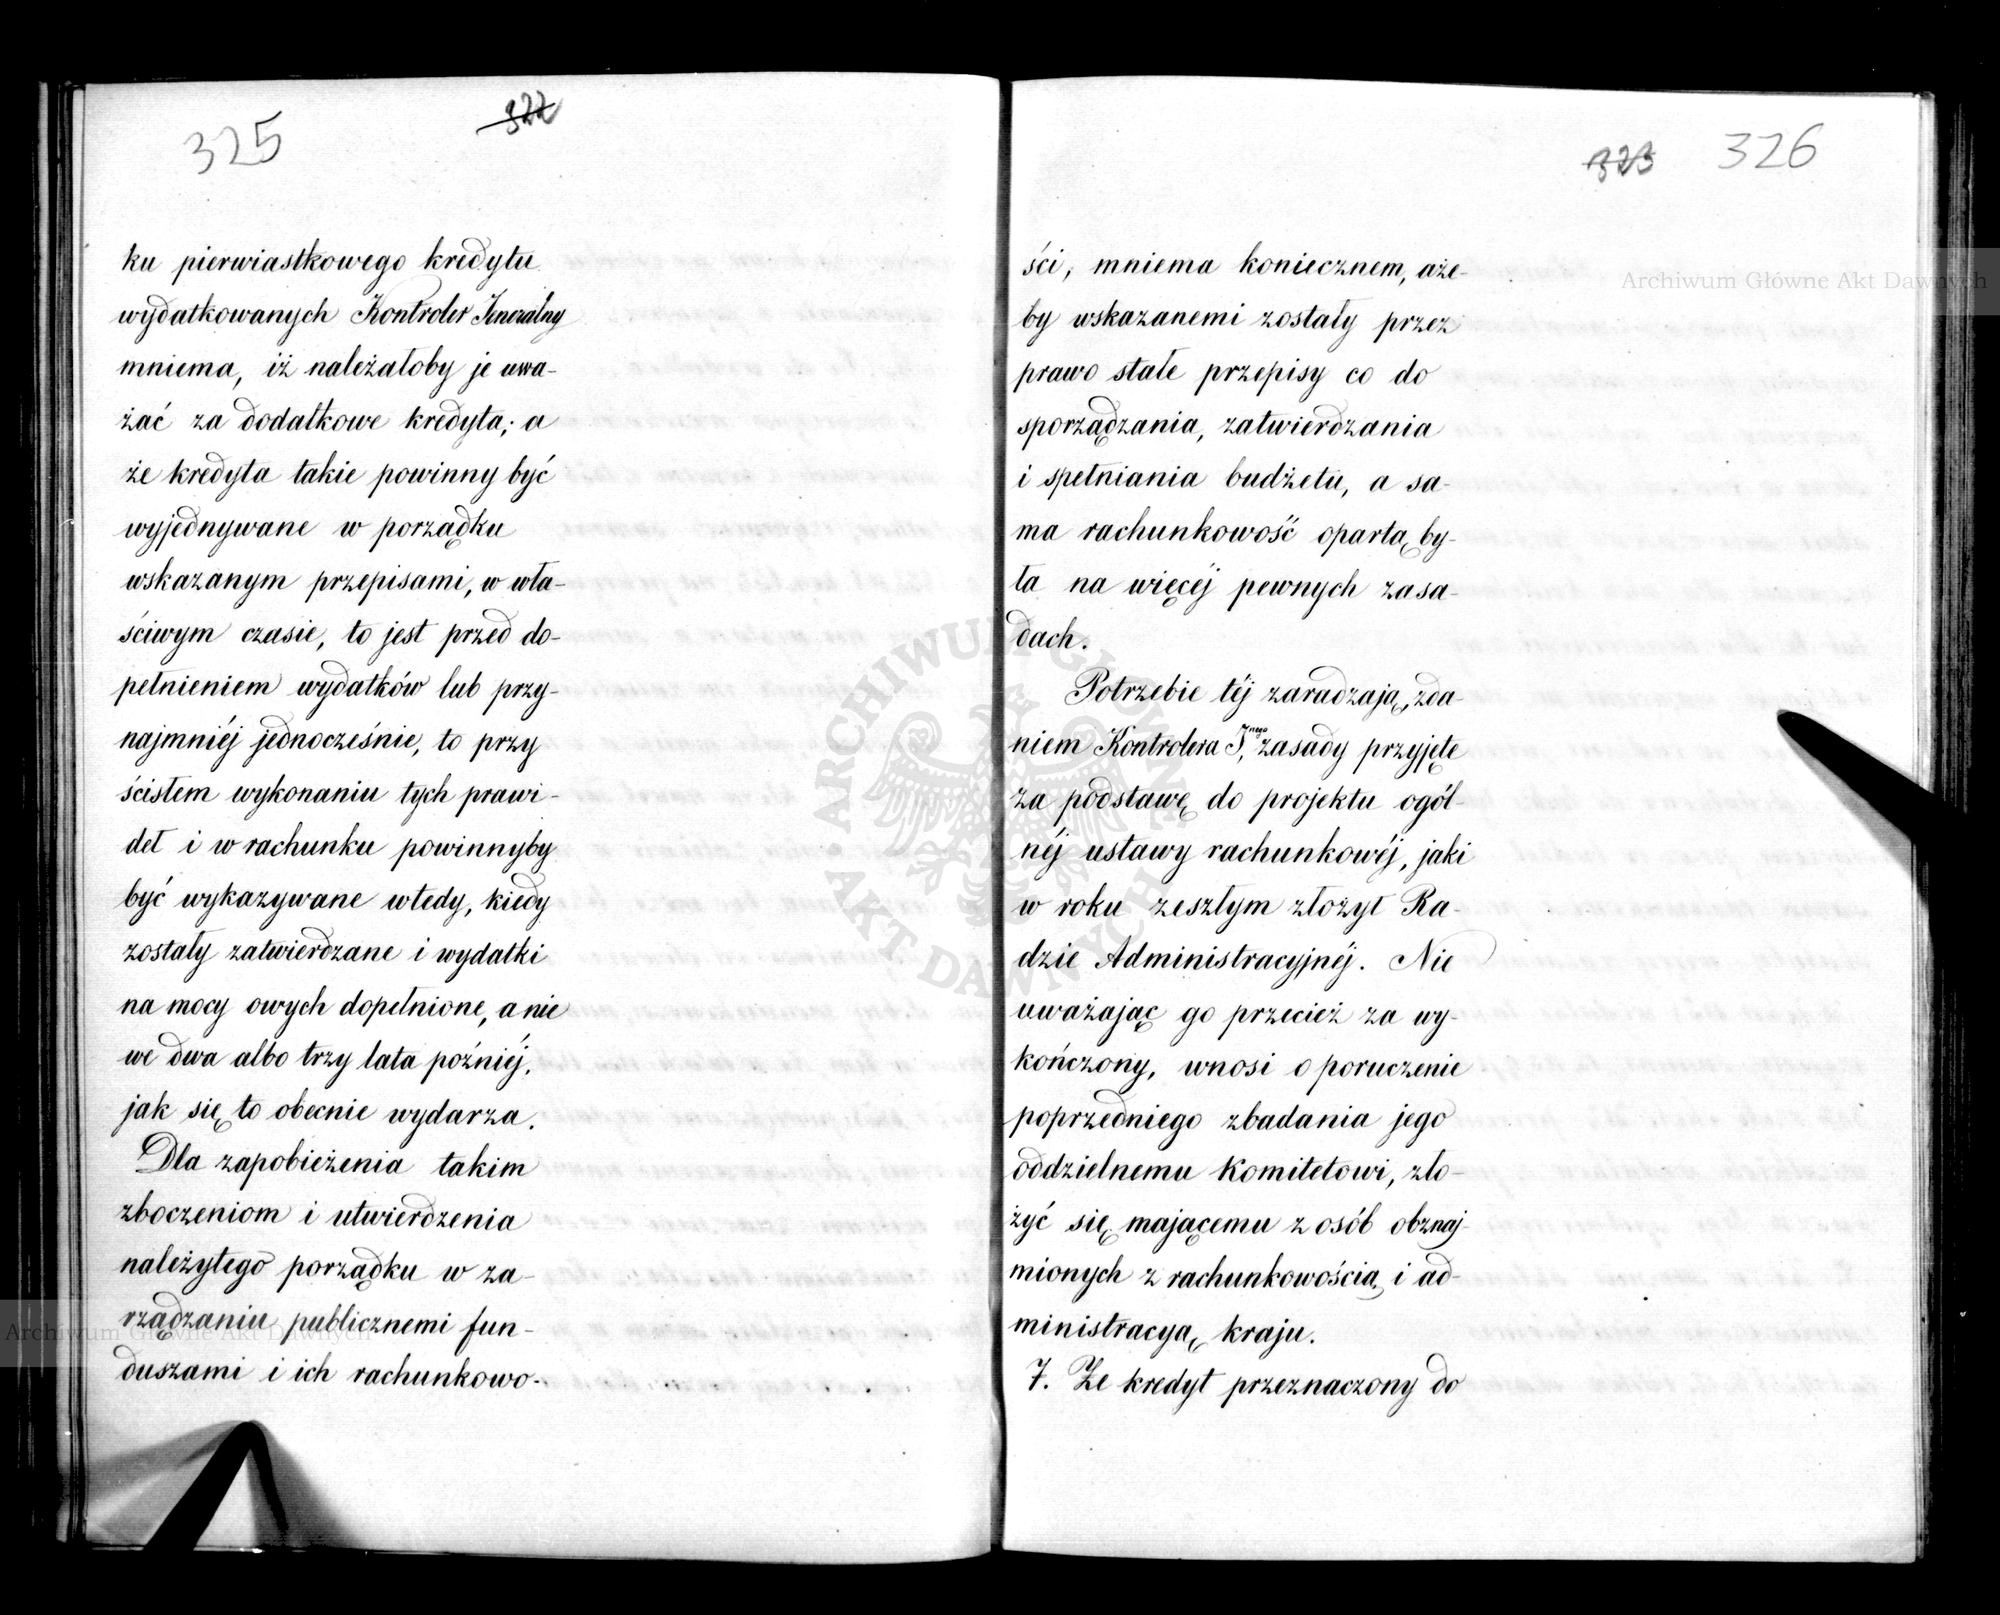 325
322
ku pierwiastkowego kredytu
wydatkowanych Kontroler Jeneralny
mniema, iż należałoby je uwa-
żać za dodatkowe kredyta; a
że kredyta takie powinny być
wyjednywane w porządku
wskazanym przepisami, w wła-
ściwym czasie, to jest przed do-
pełnieniem wydatków lub przy-
najmniéj jednocześnie, to przy
ścisłem wykonaniu tych prawi-
deł i w rachunku powinnyby
być wykazywane wtedy, kiedy
zostały zatwierdzane i wydatki
na mocy owych dopełnione, a nie
we dwa albo trzy lata poźniéj,
jak się to obecnie wydarza.
Dla zapobieżenia takim
zboczeniom i utwierdzenia
należytego porządku w za-
rządzaniu publicznemi fun-
duszami i ich rachunkowo-
323 326
ści, mniema koniecznem, aże-
by wskazanemi zostały przez
prawo stałe przepisy co do
sporządzania, zatwierdzania
i spełniania budżetu, a sa-
ma rachunkowość opartą by-
ła na więcéj pewnych zasa-
dach.
Potrzebie téj zaradzają, zda-
niem Kontrolera J<sup>nego</sup>, zasady przyjęte
za podstawę do projektu ogól-
néj ustawy rachunkowéj, jaki
w roku zeszłym złożył Ra-
dzie Administracyjnéj. Nie
uważając go przecież za wy-
kończony, wnosi o poruczenie
poprzedniego zbadania jego
oddzielnemu Komitetowi, zło-
żyć się mającemu z osób obznaj-
mionych z rachunkowością i ad-
ministracyą kraju.
7. Że kredyt przeznaczony do
Archiwum Główne Akt Dawnych
Archiwum Główne Akt Dawnych
ARCHIWUM GŁÓWNE AKT DAWNYCH